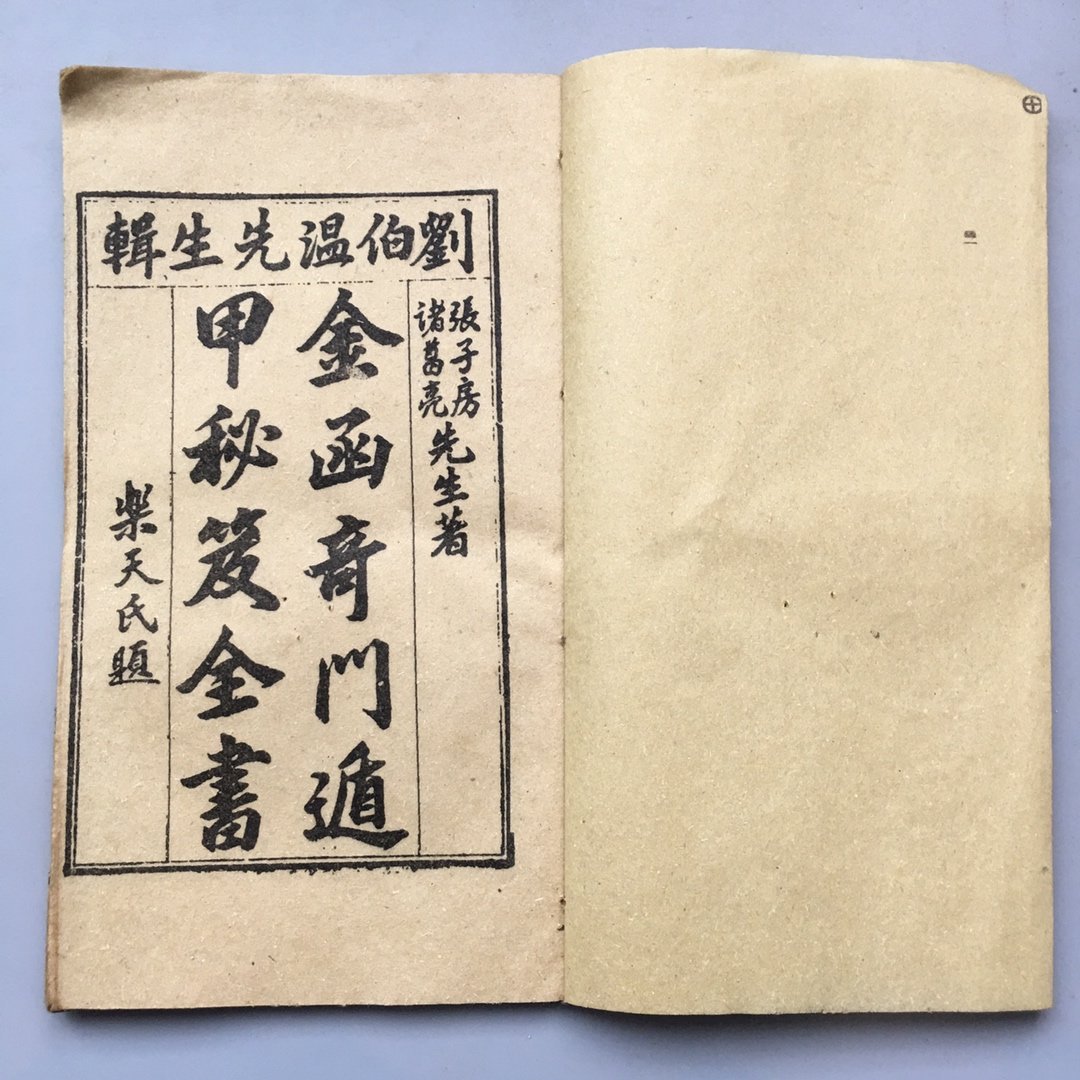 劉伯温先生輯
張子房
諸葛亮
先生著
金函奇門遁
甲秘笈全書
樂天氏題